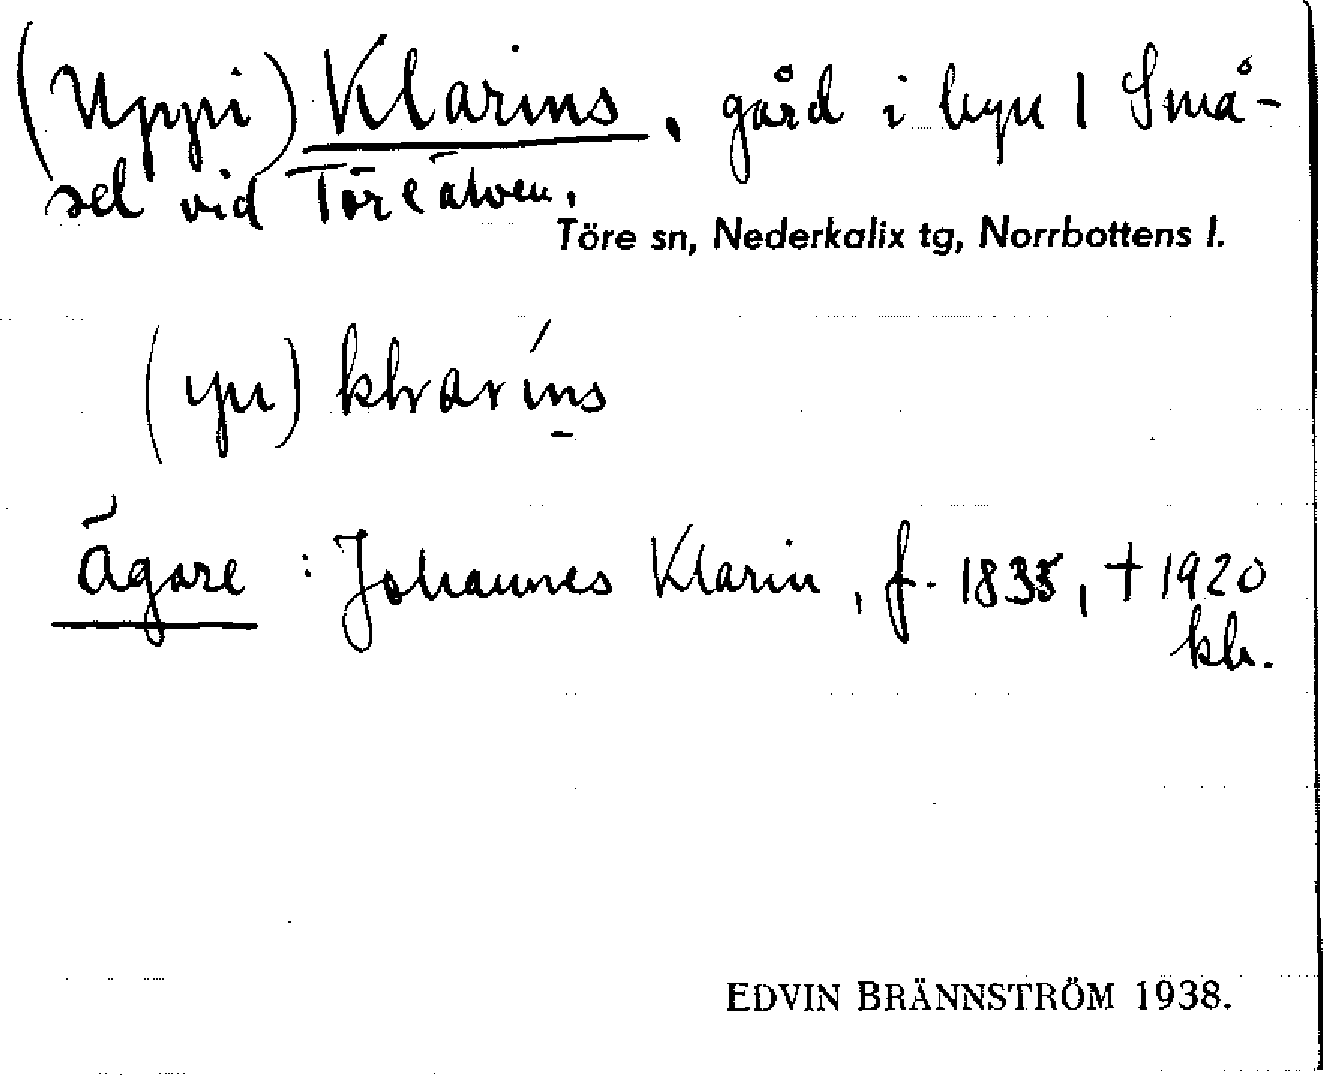 (Uppi) Klarins, gård i byn 1 Små-
sel vid Töreälven.
Töre sn, Nederkalix tg, Norrbottens l.
(ypi)
Ägare : Johannes Klarin, f. 1835, † 1920
EDVIN BRÄNNSTRÖM 1938.